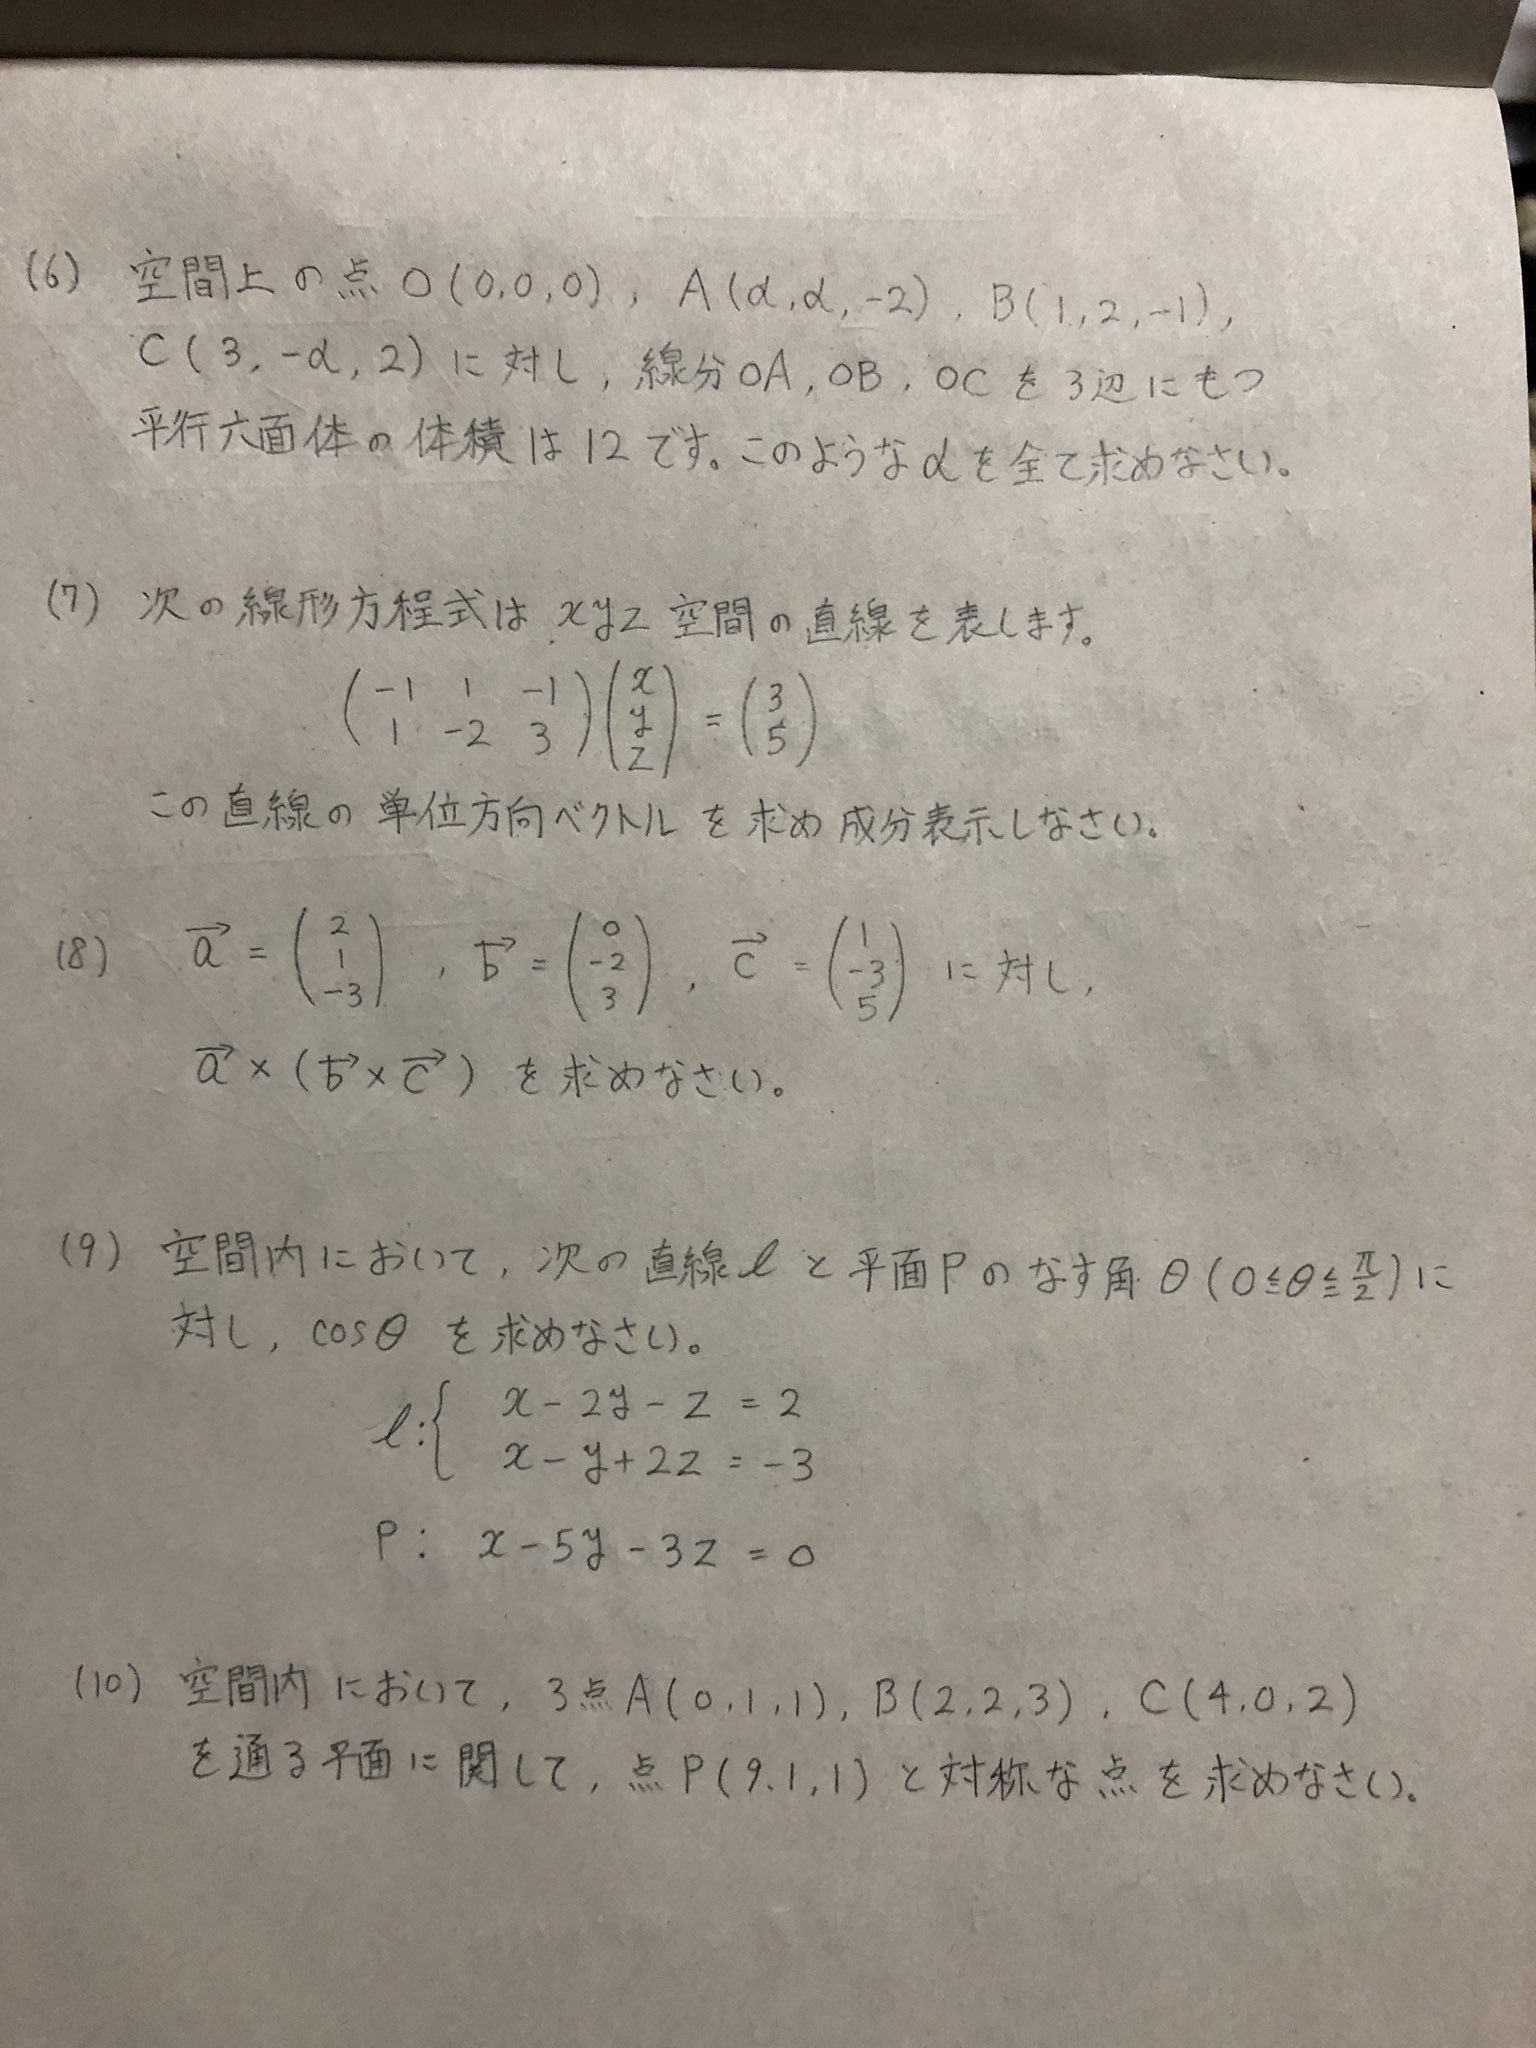 (6) 空間上の点O(0,0,0), A(α,α,-2), B(1,2,-1),
C(3,-α,2)に対し,線分OA,OB,OCを3辺にもつ
平行六面体の体積は12です。このようなαを全て求めなさい。
(7) 次の線形方程式は xyz空間の直線を表します。
(-1 1 -1) (x) = (3)
(1 -2 3) (y) (5)
(z)
この直線の単位方向ベクトルを求め成分表示しなさい。
(8) a→ = (2 1 -3), b→ = (0 -2 3), c→ = (1 -3 5) に対し,
a→ × (b→ × c→) を求めなさい。
(9) 空間内において,次の直線ℓと平面Pのなす角θ(0≦θ≦π/2)に
対し, cosθ を求めなさい。
ℓ:{ x-2y-z=2
x-y+2z=-3
P: x-5y-3z=0
(10) 空間内において, 3点A(0,1,1), B(2,2,3), C(4,0,2)
を通る平面に関して,点P(9,1,1)と対称な点を求めなさい。